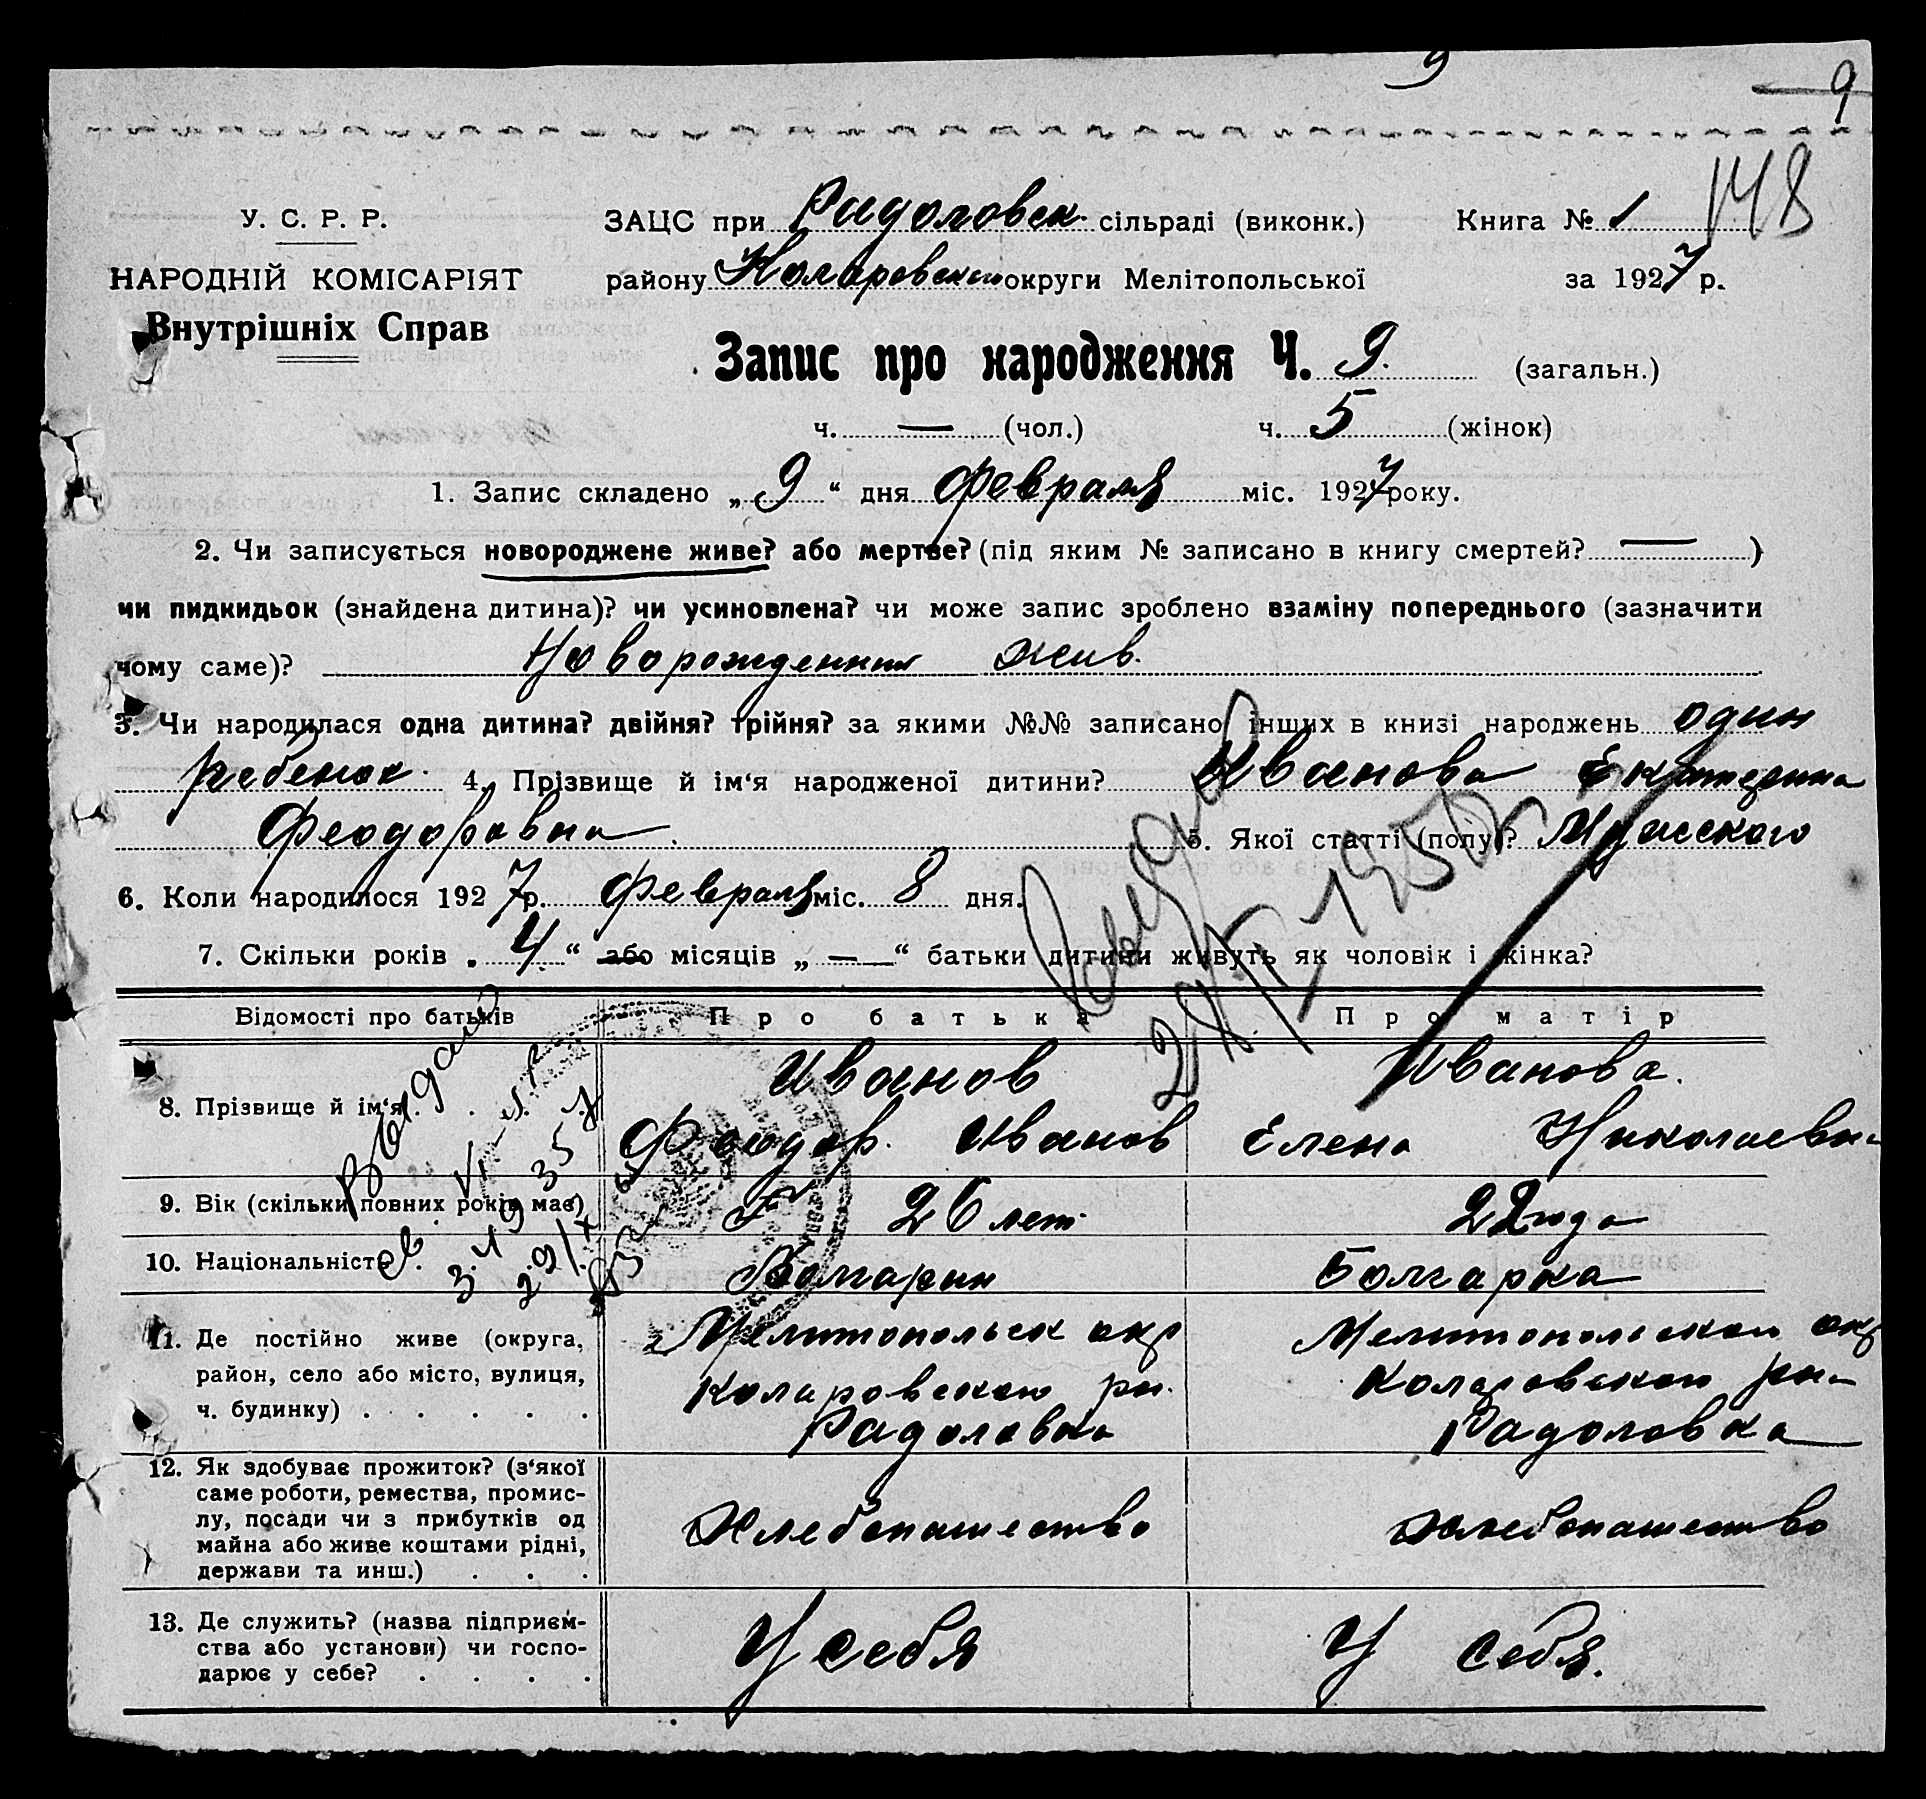 9
9
148
У. С. Р. Р.
НАРОДНІЙ КОМІСАРІЯТ
Внутрішніх Справ
ЗАЦС при Радоловск. сільраді (виконк.) Книга № 1
району Коларовского округи Мелітопольської за 1927 р.
Запис про народження Ч. 9. (загальн.)
ч. — (чол.) ч. 5 (жінок)
1. Запис складено „ 9 “ дня февраля міс. 1927 року.
2. Чи записується новороджене живе? або мертве? (під яким № записано в книгу смертей? — )
чи пидкидьок (знайдена дитина)? чи усиновлена? чи може запис зроблено взаміну попереднього (зазначити
чому саме)? Новорожденная жив.
3. Чи народилася одна дитина? двійня? трійня? за якими №№ записано інших в книзі народжень один
ребенок. 4. Прізвище й ім‘я народженої дитини? Иванова Екатерина
Феодоровна. 5. Якої статті (полу)? Мужского
6. Коли народилося 1927 р. февраля міс. 8 дня.
7. Скільки років „ 4 “ або місяців „ — “ батьки дитини живуть як чоловік і жінка?
Відомості про батьків Про батька Про матір
8. Прізвище й ім‘я . . . . Иванов Феодор. Иванов Иванова. Елена Николаевна
9. Вік (скільки повних років має) 26 лет 22 года
10. Національність . Болгарин Болгарка
11. Де постійно живе (округа,
район, село або місто, вулиця,
ч. будинку) . . . . . .
Мелитопольск окр
Коларовского рн.
Радоловка
Мелитопольского окр
Коларовского рн
Радоловка
12. Як здобуває прожиток? (з‘якої
саме роботи, ремества, промис-
лу, посади чи з прибутків од
майна або живе коштами рідні,
держави та инш.) . . .
Хлебопашество
Хлебопашество
13. Де служить? (назва підприєм-
ства або установи) чи госпо-
дарює у себе? . . . .
У себя
У себя.